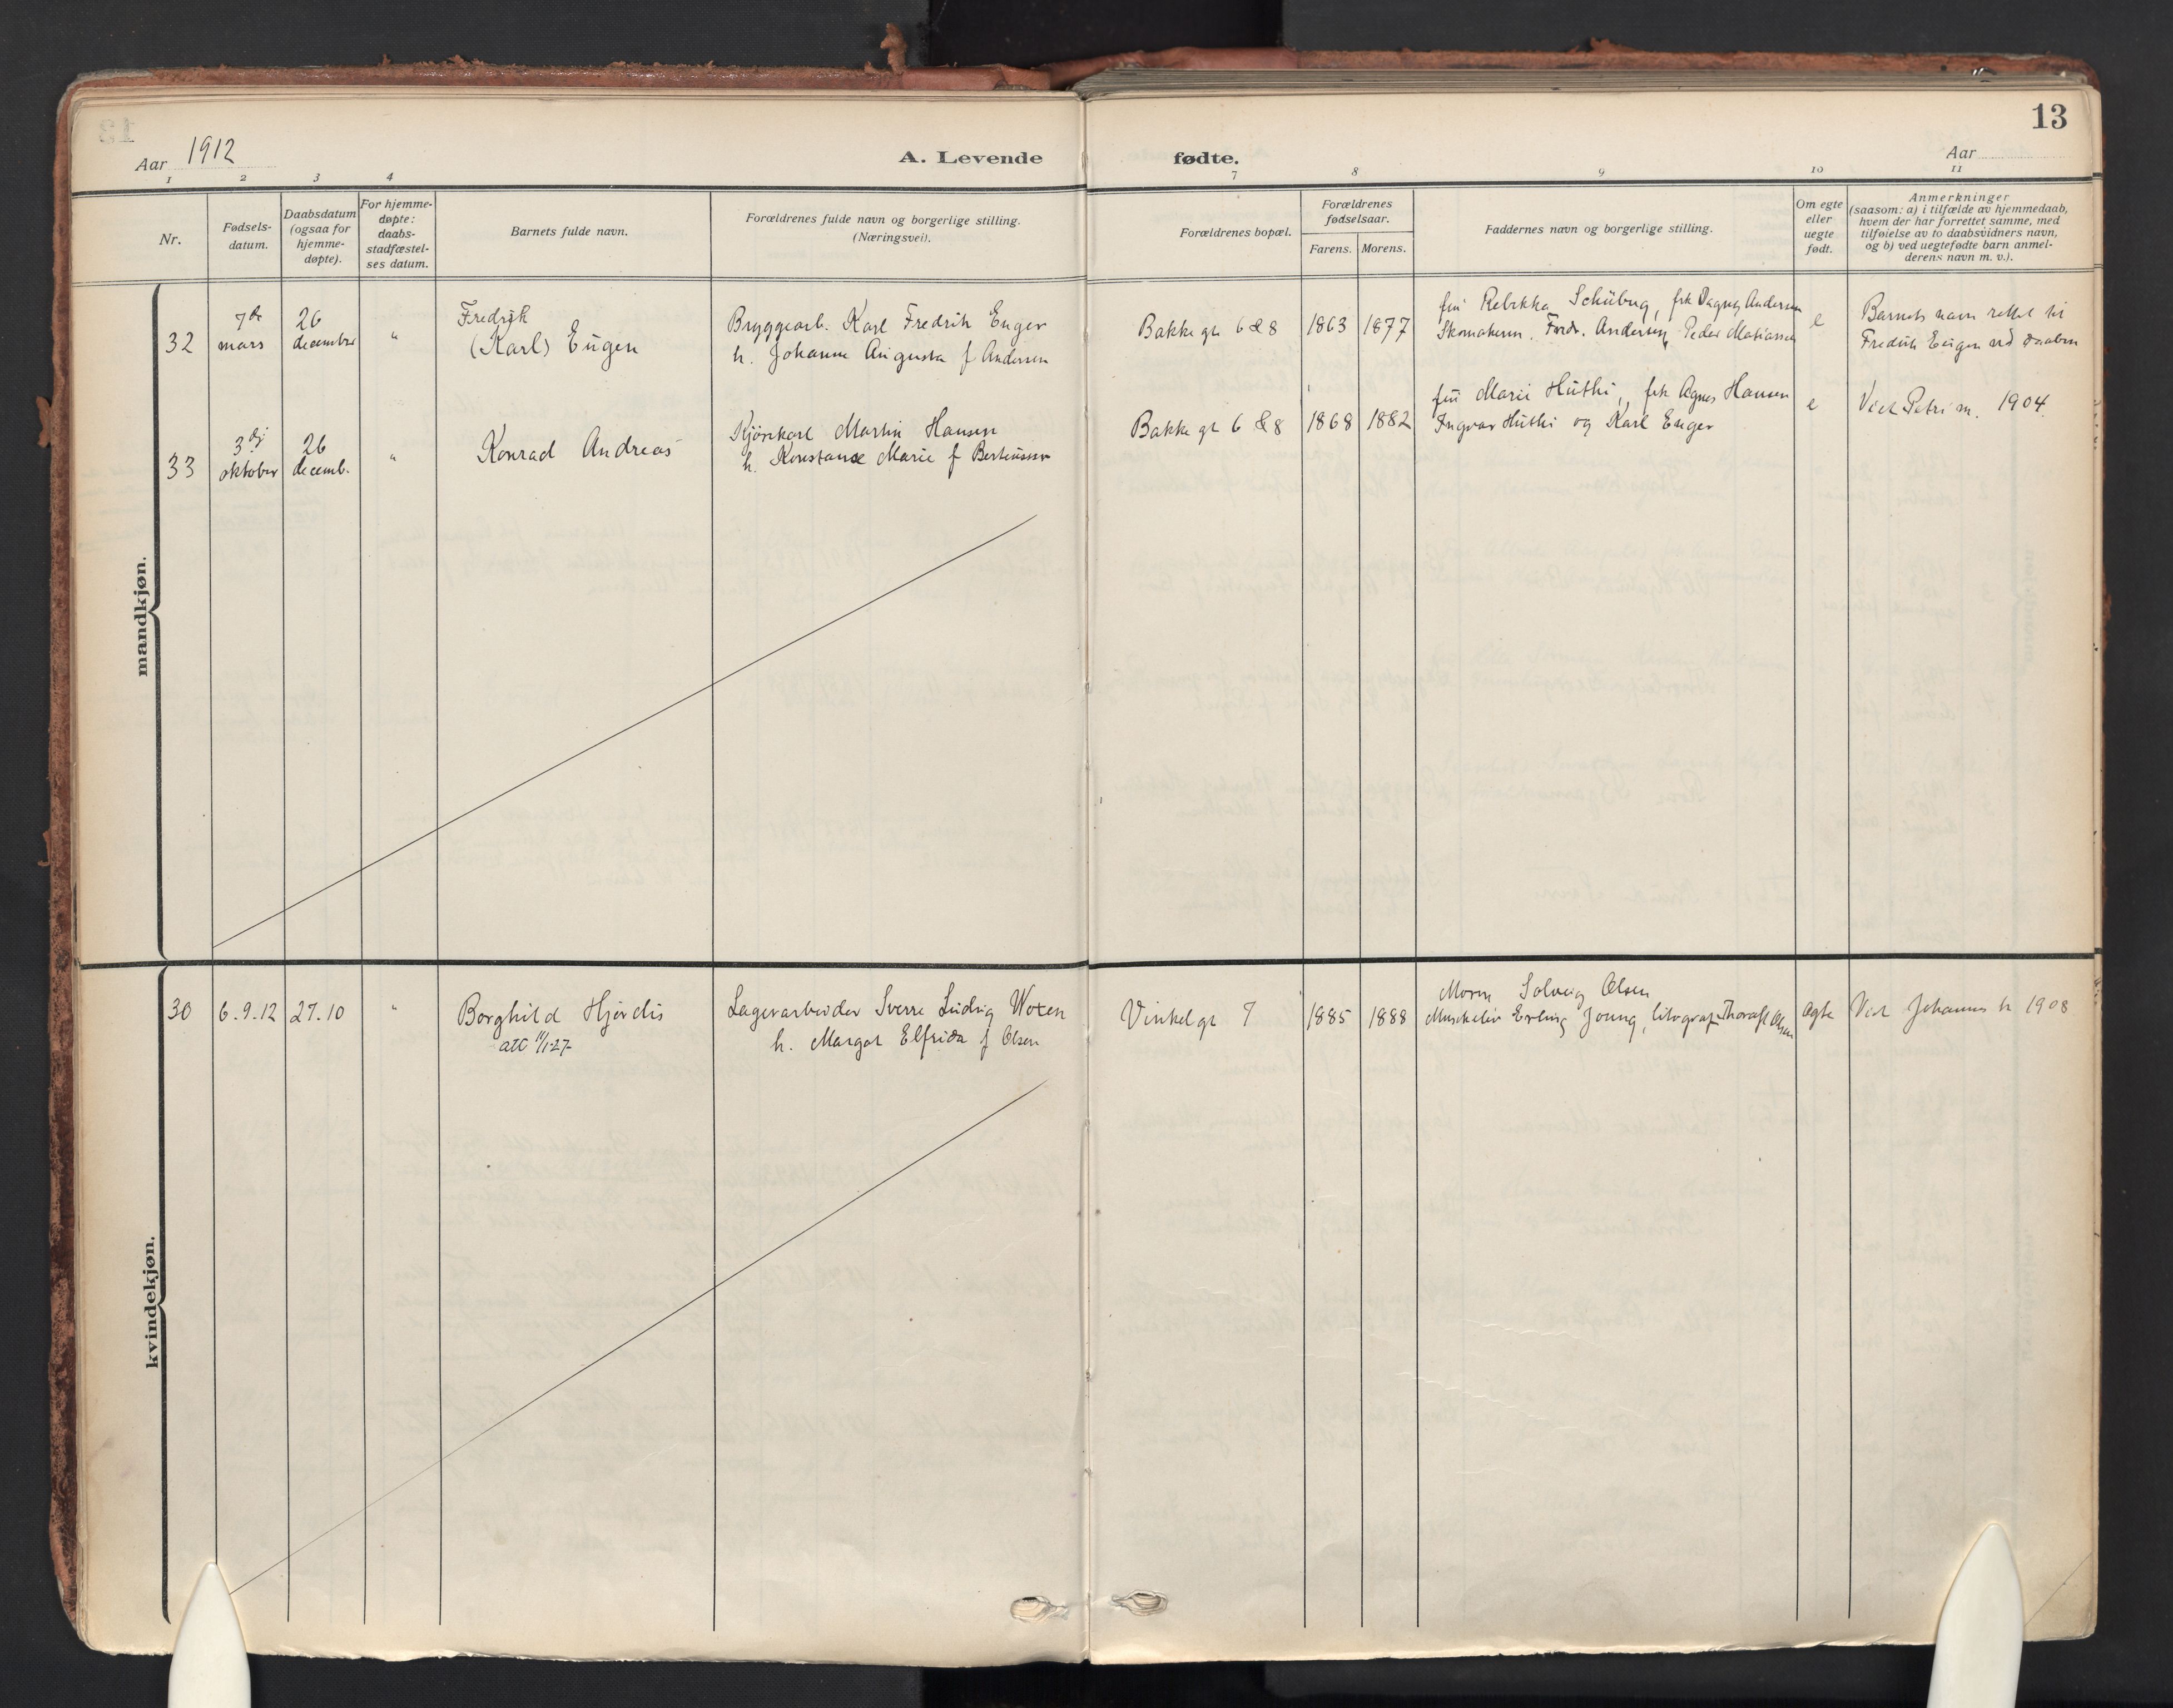 13
Aar 1912
A. Levende fødte.
Aar
1 2 3 4 7 8 9 10 11
Nr.
Fødsels-
datum.
Daabsdatum
(ogsaa for
hjemme-
døpte).
For hjemme-
døpte:
daabs-
stadfæstel-
ses datum.
Barnets fulde navn.
Forældrenes fulde navn og borgerlige stilling.
(Næringsvei).
Forældrenes bopæl.
Forældrenes
fødselsaar.
Farens. Morens.
Faddernes navn og borgerlige stilling.
Om egte
eller
uegte
født.
Anmerkninger
(saasom: a) i tilfælde av hjemmedaab,
hvem der har forrettet samme, med
tilføielse av to daabsvidners navn,
og b) ved uegtefødte barn anmel-
derens navn m. v.).
mandkjøn.
32
7de
mars
26
december
"
Fredrik
(Karl) Eugen
Bryggearb. Karl Fredrik Enger
h. Johanne Augusta f Andersen
Bakke gt 6 & 8
1863 1877
fru Rebekka Schüberg, frk Dagny Andersen
Skomakerm. Fredr. Andersen, Peder Matiassen
e
Barnets navn rettet til
Fredrik Eugen ved daaben
33
3dj
oktober
26
decemb.
"
Konrad Andreas
Kjørekarl Martin Hansen
h. Konstanse Marie f Berteussen
Bakke gt 6 & 8
1868 1882
fru Marie Huthi, frk Agnes Hansen
Ingvar Huthi og Karl Enger
e
Viet Petri m. 1904.
kvindekjøn.
30
6.9.12
27.10
"
Borghild Hjørdis
att 11/1-27-
Lagerarbeider Sverre Ludvig Woxen
h. Margot Elfrida f Olsen
Vinkelgt 7
1885 1888
Moren Solveig Olsen
Musikelev Erling Joung, litograf Thoralf Olsen
Ægte
Viet Johannes k 1908